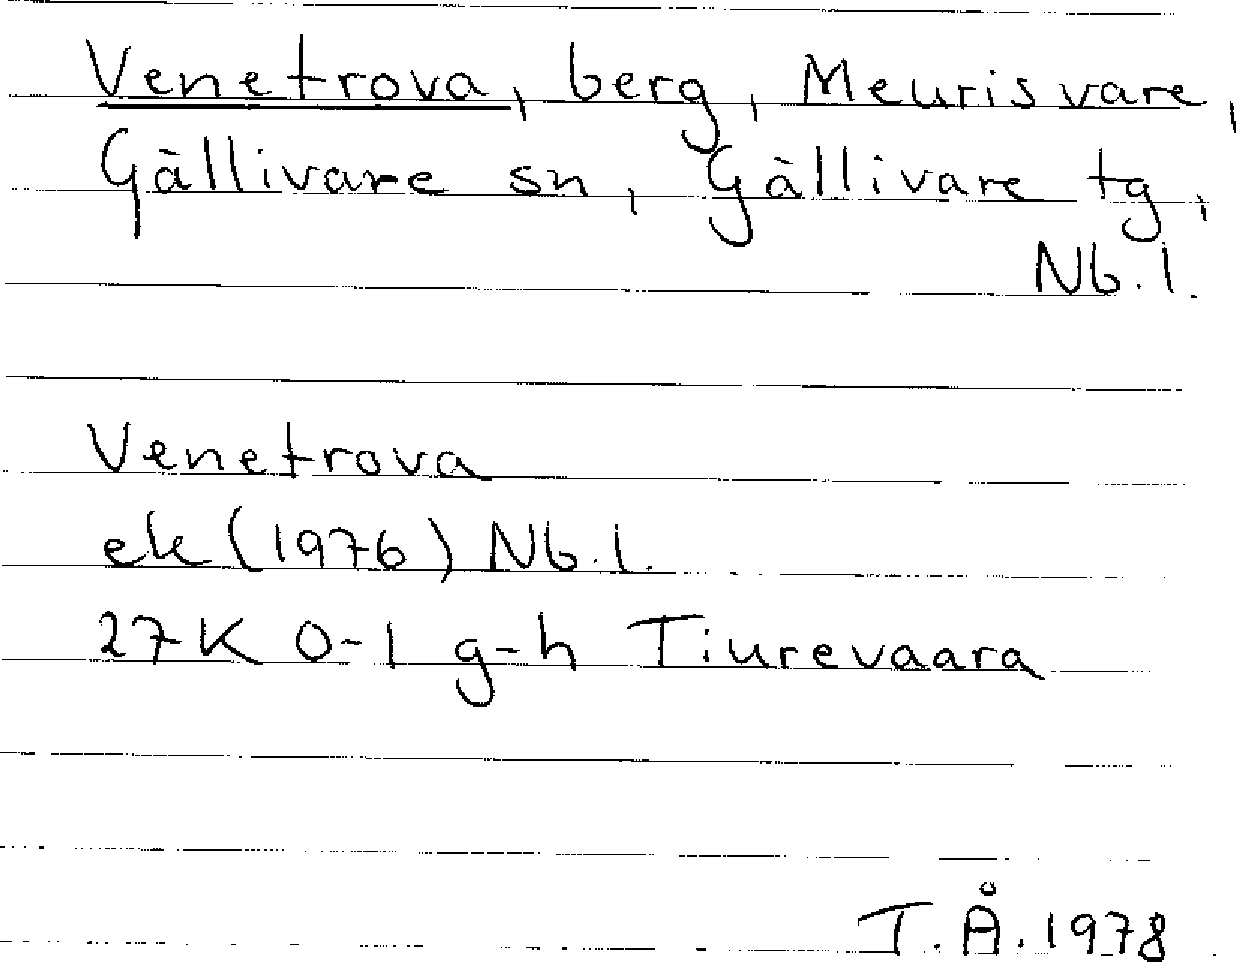 Venetrova, berg, Meurisvare,
Gällivare sn, Gällivare tg,
Nb.l.
Venetrova
ek (1976) Nb.l.
27K 0-1 g-h Tiurevaara
T.Å.1978